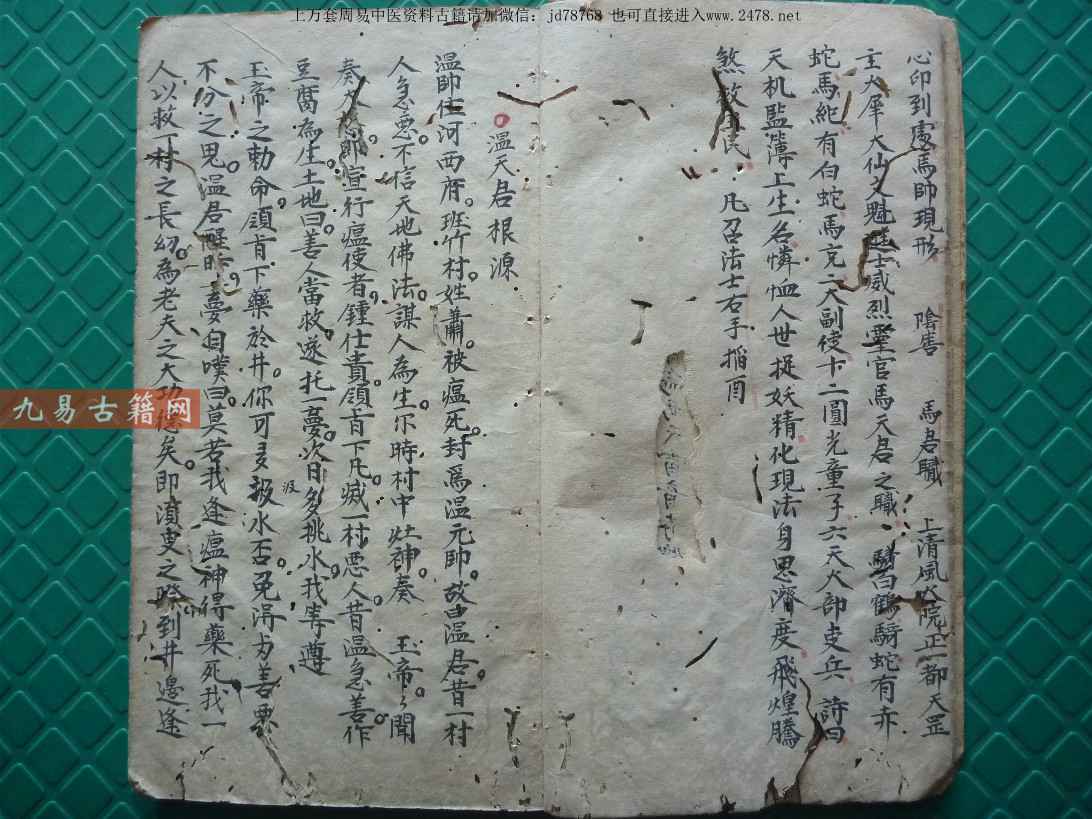 上万套周易中医资料古籍请加微信：jd78768 也可直接进入www.2478.net
心印到處馬帥現形 陰害 馬君職 上清風火院正一都天罡
主大犀大仙文魁 士威烈靈官馬天君之職 白鶴騎蛇有赤
蛇馬 有白蛇馬充二大副使十二圓光童子六天火部吏兵 詩曰
天机監簿上生名憐恤人世捉妖精化現法身思濟度飛煌騰
煞救 民 凡召法士右手掐酉
溫天君根源
溫帥住河西府班竹村姓蕭被瘟死封爲溫元帥故曰溫君昔一村
人急惡不信天地佛法謀人為生尔時村中灶神奏 玉帝〻聞
奏 即宣行瘟使者鍾仕貴領旨下凡滅一村惡人昔溫急善作
豆腐為生土地曰善人當救遂托一夢次日多挑水我等遵
汲
玉帝之勅命領旨下藥於井你可多汲水否免淂 善惡
不分之鬼溫君醒 一夢自嘆曰莫若我逢瘟神得藥死我一
人以救一村之長幼為老夫之大功 矣即湏臾之際到井邊逢
九易古籍网